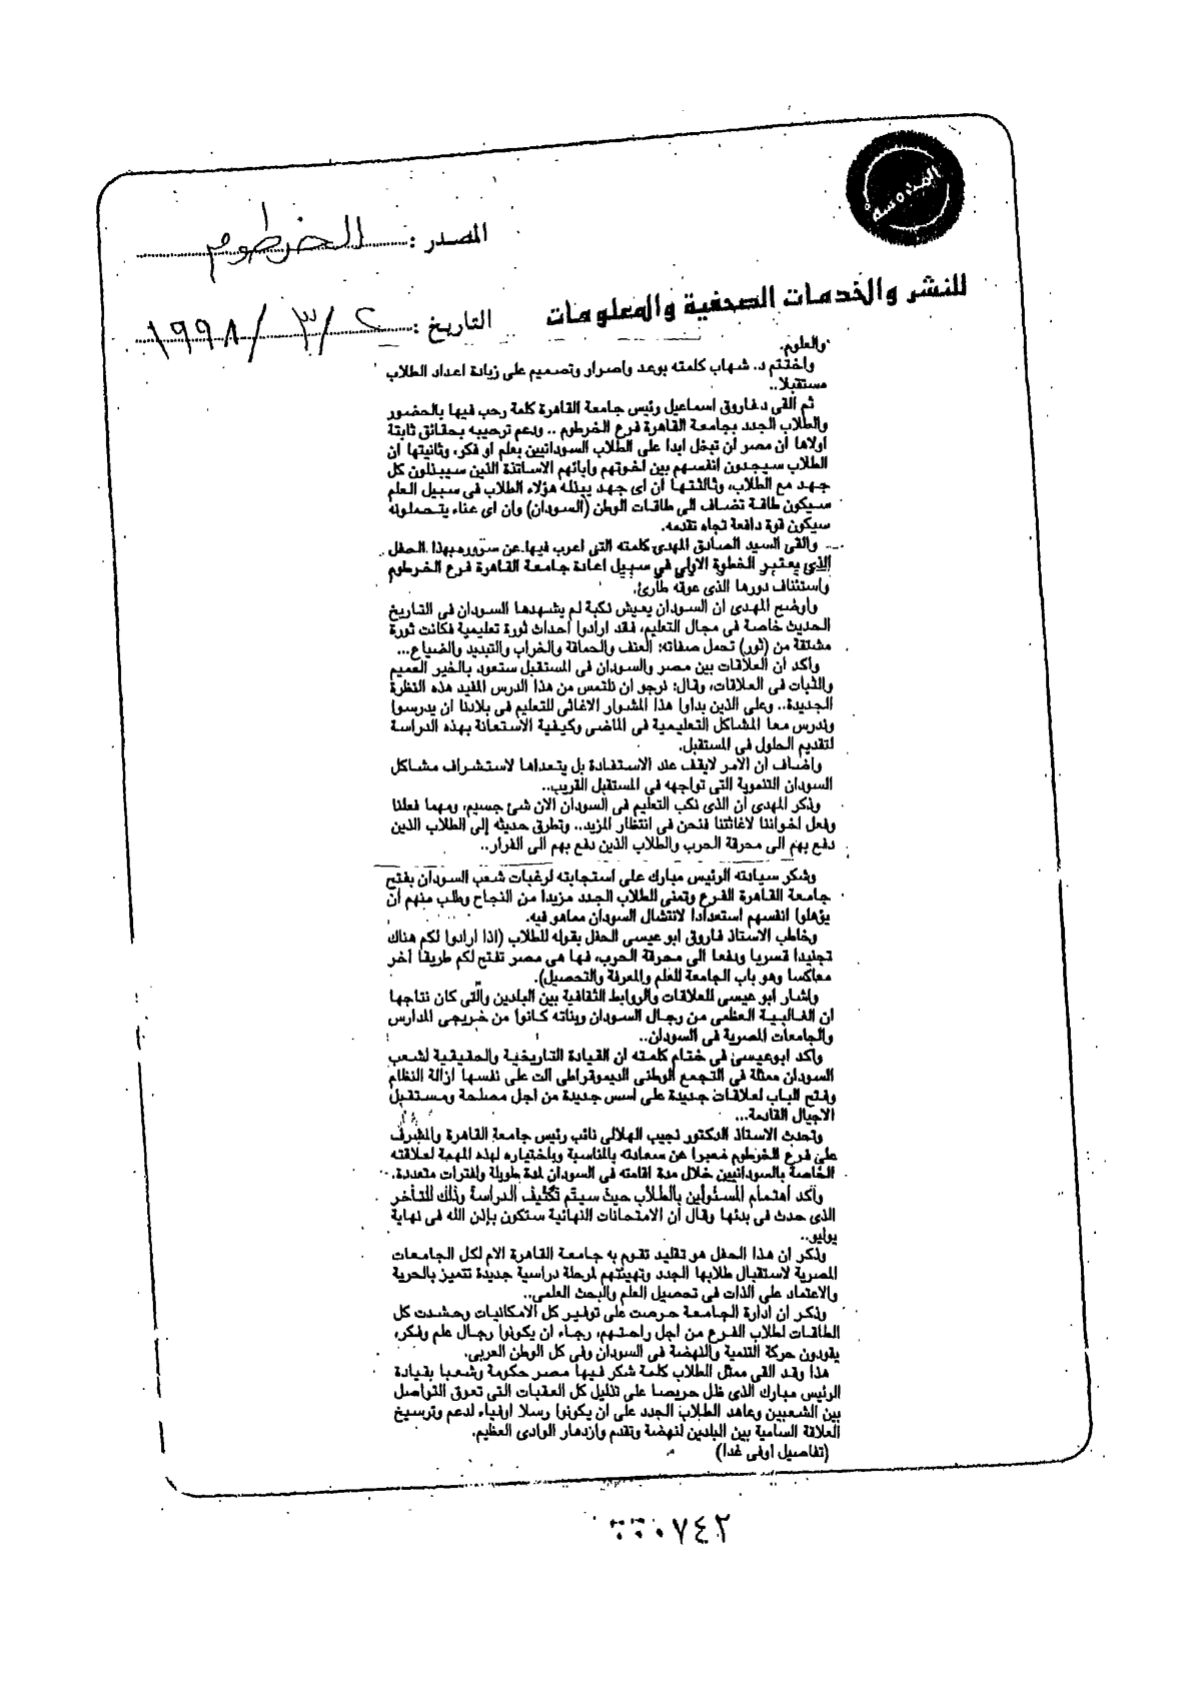 المصدر : الخرطوم
للنشر والخدمات الصحفية والمعلومات
التاريخ : ٢ / ٣ / ١٩٩٨
والعلوم.
واختتم د. شهاب كلمته بوعد واصرار وتصميم على زيادة اعداد الطلاب
مستقبلا..
ثم القى د.فاروق اسماعيل رئيس جامعة القاهرة كلمة رحب فيها بالحضور
والطلاب الجدد بجامعة القاهرة فرع الخرطوم .. ودعم ترحيبه بحقائق ثابتة
اولاها أن مصر لن تبخل ابدا على الطلاب السودانيين بعلم او فكر، وثانيتها ان
الطلاب سيجدون انفسهم بين اخوتهم وآبائهم الاساتذة الذين سيبذلون كل
جهد مع الطلاب، وثالثتها ان اى جهد يبذله هؤلاء الطلاب فى سبيل العلم
سيكون طاقة تضاف الى طاقات الوطن (السودان) وان اى عناء يتحملونه
سيكون قوة دافعة تجاه تقدمه.
والقى السيد الصادق المهدى كلمته التى اعرب فيها عن سروره بهذا الحفل
الذى يعتبر الخطوة الاولى فى سبيل اعادة جامعة القاهرة فرع الخرطوم
واستئناف دورها الذى عوقه طارئ.
واوضح المهدى ان السودان يعيش نكبة لم يشهدها السودان فى التاريخ
الحديث خاصة فى مجال التعليم، فقد ارادوا احداث ثورة تعليمية فكانت ثورة
مشتقة من (ثور) تحمل صفاته: العنف والحماقة والخراب والتبديد والضياع...
واكد ان العلاقات بين مصر والسودان فى المستقبل ستعود بالخير العميم
والثبات فى العلاقات، وقال: نرجو ان نلتمس من هذا الدرس المفيد هذه النظرة
الجديدة.. وعلى الذين بداوا هذا المشوار الاغاثى للتعليم فى بلادنا ان يدرسوا
وندرس معا المشاكل التعليمية فى الماضى وكيفية الاستعانة بهذه الدراسة
لتقديم الحلول فى المستقبل.
واضاف ان الامر لايقف عند الاستفادة بل يتعداها لاستشراف مشاكل
السودان التنموية التى تواجهه فى المستقبل القريب..
وذكر المهدى ان الذى نكب التعليم فى السودان الان شئ جسيم، ومهما فعلنا
وفعل اخواننا لاغاثتنا فنحن فى انتظار المزيد.. وتطرق حديثه إلى الطلاب الذين
دفع بهم الى محرقة الحرب والطلاب الذين دفع بهم الى الفرار..
وشكر سيادته الرئيس مبارك على استجابته لرغبات شعب السودان بفتح
جامعة القاهرة الفرع وتمنى للطلاب الجدد مزيدا من النجاح وطلب منهم أن
يؤهلوا انفسهم استعدادا لانتشال السودان مماهو فيه.
وخاطب الاستاذ فاروق ابو عيسى الحفل بقوله للطلاب (اذا ارادوا لكم هناك
تجنيدا قسريا ودفعا الى محرقة الحرب، فها هى مصر تفتح لكم طريقا آخر
معاكسا وهو باب الجامعة للعلم والمعرفة والتحصيل).
واشار ابو عيسى للعلاقات والروابط الثقافية بين البلدين والتى كان نتاجها
ان الغالبية العظمى من رجال السودان وبناته كانوا من خريجى المدارس
والجامعات المصرية فى السودان..
واكد ابوعيسى فى ختام كلمته ان القيادة التاريخية والحقيقية لشعب
السودان ممثلة فى التجمع الوطنى الديموقراطى الت على نفسها ازالة النظام
وفتح الباب لعلاقات جديدة على اسس جديدة من اجل مصلحة ومستقبل
الاجيال القادمة...
وتحدث الاستاذ الدكتور نجيب الهلالى نائب رئيس جامعة القاهرة والمشرف
على فرع الخرطوم معبرا عن سعادته بالمناسبة وباختياره لهذه المهمة لعلاقته
الخاصة بالسودانيين خلال مدة اقامته فى السودان لمدة طويلة ولفترات متعددة.
وأكد اهتمام المسئولين بالطلاب حيث سيتم تكثيف الدراسة وذلك للتأخر
الذى حدث فى بدئها وقال ان الامتحانات النهائية ستكون بإذن الله فى نهاية
يوليو..
وذكر ان هذا الحفل هو تقليد تقوم به جامعة القاهرة الام لكل الجامعات
المصرية لاستقبال طلابها الجدد وتهيئتهم لمرحلة دراسية جديدة تتميز بالحرية
والاعتماد على الذات فى تحصيل العلم والبحث العلمى..
وذكر ان ادارة الجامعة حرصت على توفير كل الامكانيات وحشدت كل
الطاقات لطلاب الفرع من اجل راحتهم، رجاء ان يكونوا رجال علم وفكر،
يقودون حركة التنمية والنهضة فى السودان وفى كل الوطن العربى.
هذا وقد القى ممثل الطلاب كلمة شكر فيها مصر حكومة وشعبا بقيادة
الرئيس مبارك الذى ظل حريصا على تذليل كل العقبات التى تعوق التواصل
بين الشعبين وعاهد الطلاب الجدد على ان يكونوا رسلا اوفياء لدعم وترسيخ
العلاقة السامية بين البلدين لنهضة وتقدم وازدهار الوادى العظيم.
(تفاصيل اوفى غدا)
٠٧٤٢